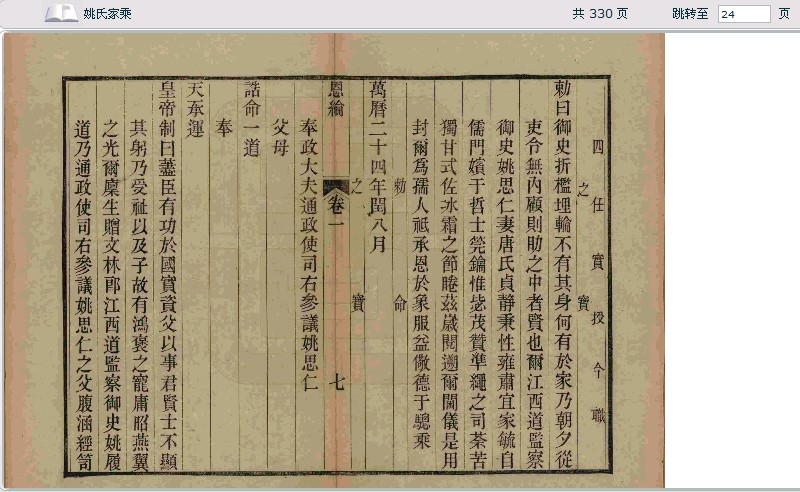 姚氏家乘
共 330 页
跳转至 24 页
四任實授今職
之寶
勅曰御史折檻埋輪不有其身何有於家乃朝夕從
吏令無內顧則助之中者賢也爾江西道監察
御史姚思仁妻唐氏貞靜秉性雍肅宜家毓自
儒門嬪于哲士筦鑰惟毖茂贊準繩之司荼苦
獨甘式佐冰霜之節睠茲歲閱遡爾閫儀是用
封爾為孺人祗承恩於象服益儆德于驄乘
勅命
萬曆二十四年閏八月
之寶
恩綸 卷一 七
奉政大夫通政使司右參議姚思仁
父母
誥命一道
奉
天承運
皇帝制曰藎臣有功於國實資父以事君賢士不顯
其躬乃受祉以及子故有鴻褒之寵庸昭燕翼
之光爾廩生贈文林郎江西道監察御史姚履
道乃通政使司右參議姚思仁之父腹涵經笥